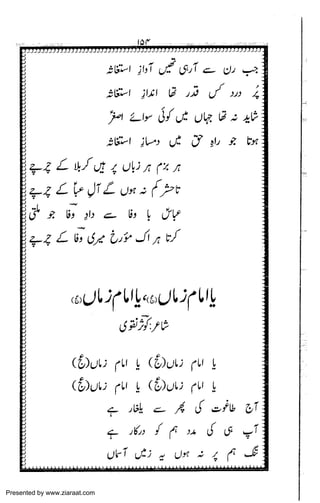 ۱۵۴
جب رن سے آ رہی تھیں آوازِ استغاثہ
پُر درد کس قدر تھا اندازِ استغاثہ
شاید نہ تھا جہاں میں کوئی سوائے اصغرؑ
ہوتا جو راہِ حق میں دمسازِ استغاثہ
ہر بزم ہر زباں پر ہیں کربلا کے چرچے
تاحشر کم نہ ہوں گے آلِ عباؑ کے چرچے
عباسؑ با وفا سے دادِ وفا جو ملتی
کرتا ہر اک مؤرخ میری وفا کے چرچے
یا امام زماں (عج)، یا امام زماں (عج)
شاعر: کوثر نقوی
یا امام زماں (عج) یا امام زماں (عج)
یا امام زماں (عج) یا امام زماں (عج)
آج طاغوت کی پھر سے یلغار ہے
آپ ہی کی مدد ہم کو درکار ہے
تنگ ہم پر نہ ہوں یہ زمیں آسماں
Presented by www.ziaraat.com